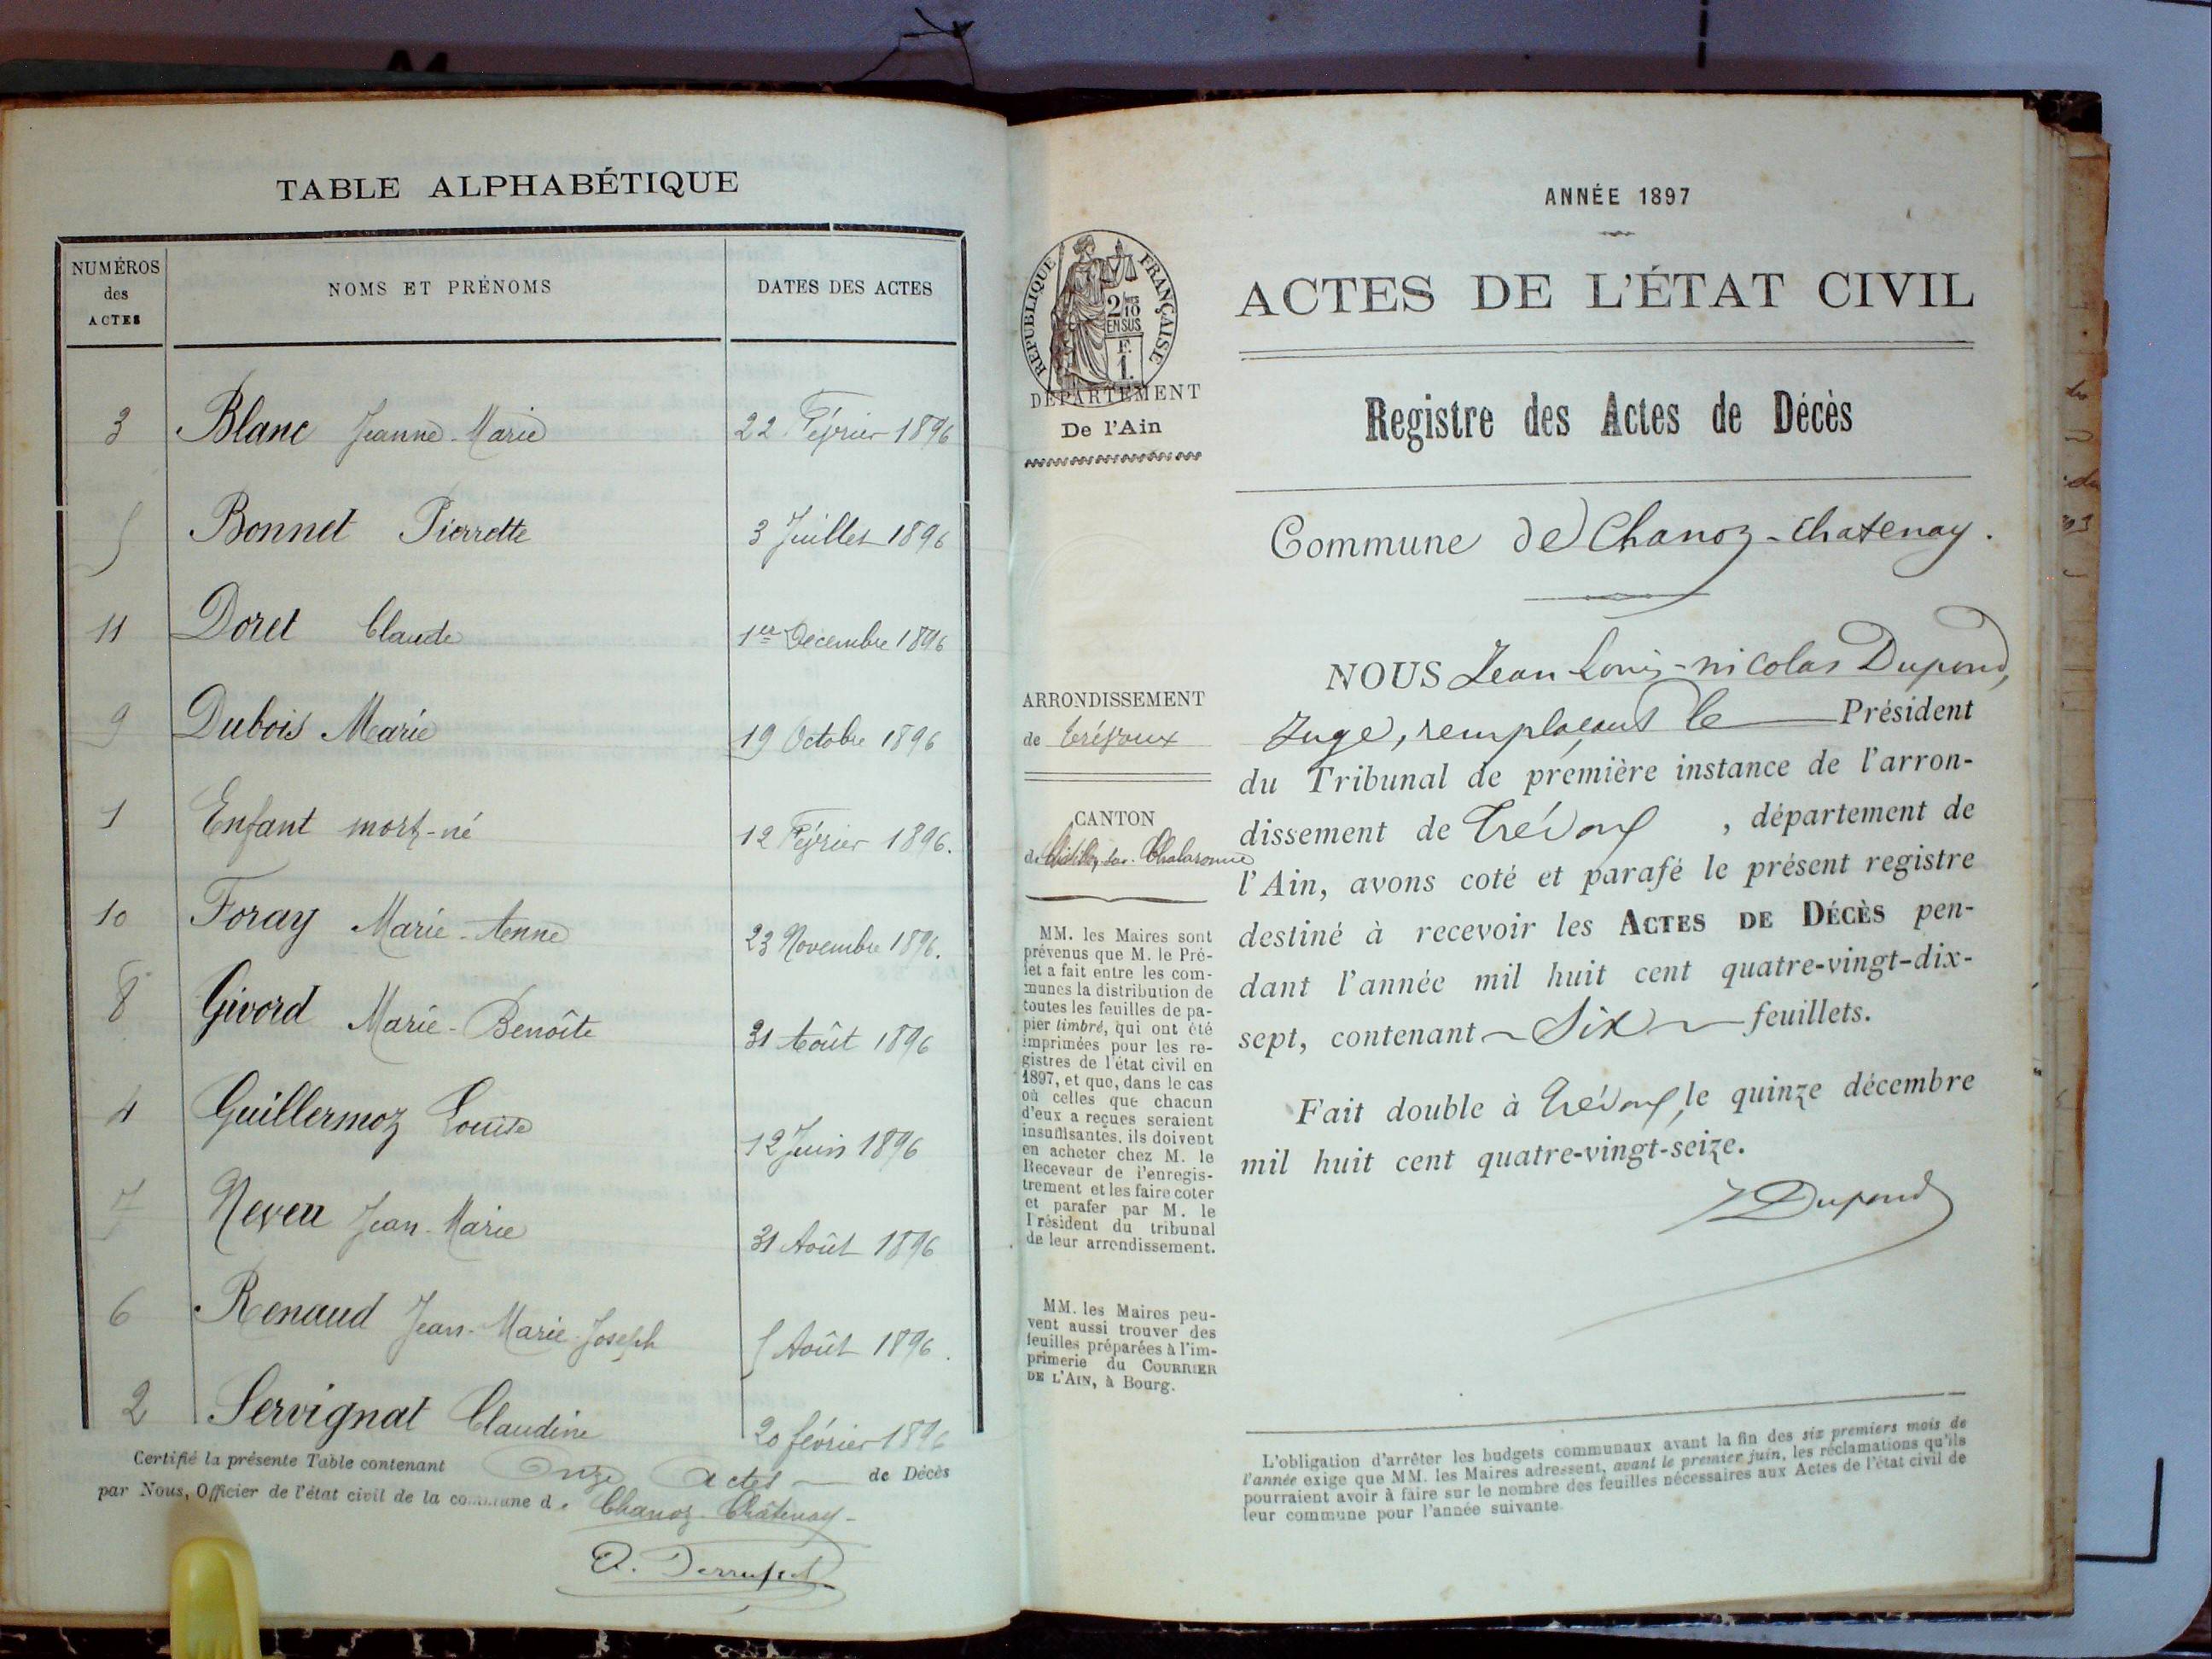 TABLE ALPHABÉTIQUE
NUMÉROS des ACTES
NOMS ET PRÉNOMS
DATES DES ACTES
3 Blanc Jeanne-Marie 22 Février 1896
5 Bonnet Pierrette 3 Juillet 1896
11 Doret Claude 1er Decembre 1896
9 Dubois Marie 19 Octobre 1896
1 Enfant mort-né 12 Février 1896.
10 Foray Marie-Anne 23 Novembre 1896.
8 Givord Marie-Benoîte 31 Août 1896
4 Guillermoz Louise 12 Juin 1896
7 Neveu Jean-Marie 31 Août 1896
6 Renaud Jean-Marie-Joseph 5 Août 1896.
2 Servignat Claudine 20 février 1896
Certifié la présente Table contenant Onze actes de Décès
par Nous, Officier de l'état civil de la commune de Chanoz-Châtenay-
ANNÉE 1897
RÉPUBLIQUE FRANÇAISE
2/10
EN SUS
F.
1.
DÉPARTEMENT
De l'Ain
ARRONDISSEMENT
de Trévoux
CANTON
de Châtillon, sur-Chalaronne
MM. les Maires sont
prévenus que M. le Pré-
fet a fait entre les com-
munes la distribution de
toutes les feuilles de pa-
pier timbré, qui ont été
imprimées pour les re-
gistres de l'état civil en
1897, et que, dans le cas
où celles que chacun
d'eux a reçues seraient
insuffisantes, ils doivent
en acheter chez M. le
Receveur de l'enregis-
trement et les faire coter
et parafer par M. le
Président du tribunal
de leur arrondissement.
MM. les Maires peu-
vent aussi trouver des
feuilles préparées à l'im-
primerie du COURRIER
DE L'AIN, à Bourg.
ACTES DE L'ÉTAT CIVIL
Registre des Actes de Décès
Commune de Chanoz-Chatenay.
NOUS Jean Louis-nicolas Dupond,
Juge, remplaçant le Président
du Tribunal de première instance de l'arron-
dissement de Trévoux, département de
l'Ain, avons coté et parafé le présent registre
destiné à recevoir les ACTES DE DÉCÈS pen-
dant l'année mil huit cent quatre-vingt-dix-
sept, contenant Six feuillets.
Fait double à Trévoux, le quinze décembre
mil huit cent quatre-vingt-seize.
Dupond
L'obligation d'arrêter les budgets communaux avant la fin des six premiers mois de
l'année exige que MM. les Maires adressent, avant le premier juin, les réclamations qu'ils
pourraient avoir à faire sur le nombre des feuilles nécessaires aux Actes de l'état civil de
leur commune pour l'année suivante